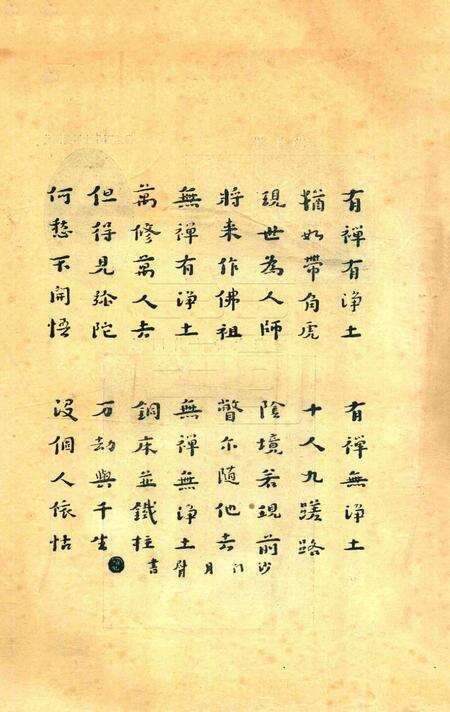 有禪有淨土
猶如帶角虎
現世為人師
將来作佛祖
無禪有淨土
萬修萬人去
但得見弥陀
何愁不開悟
有禪無淨土
十人九蹉路
陰境若現前
瞥尔隨他去
無禪無淨土
銅床並鐵柱
万劫與千生
沒個人依怙
沙門月臂書